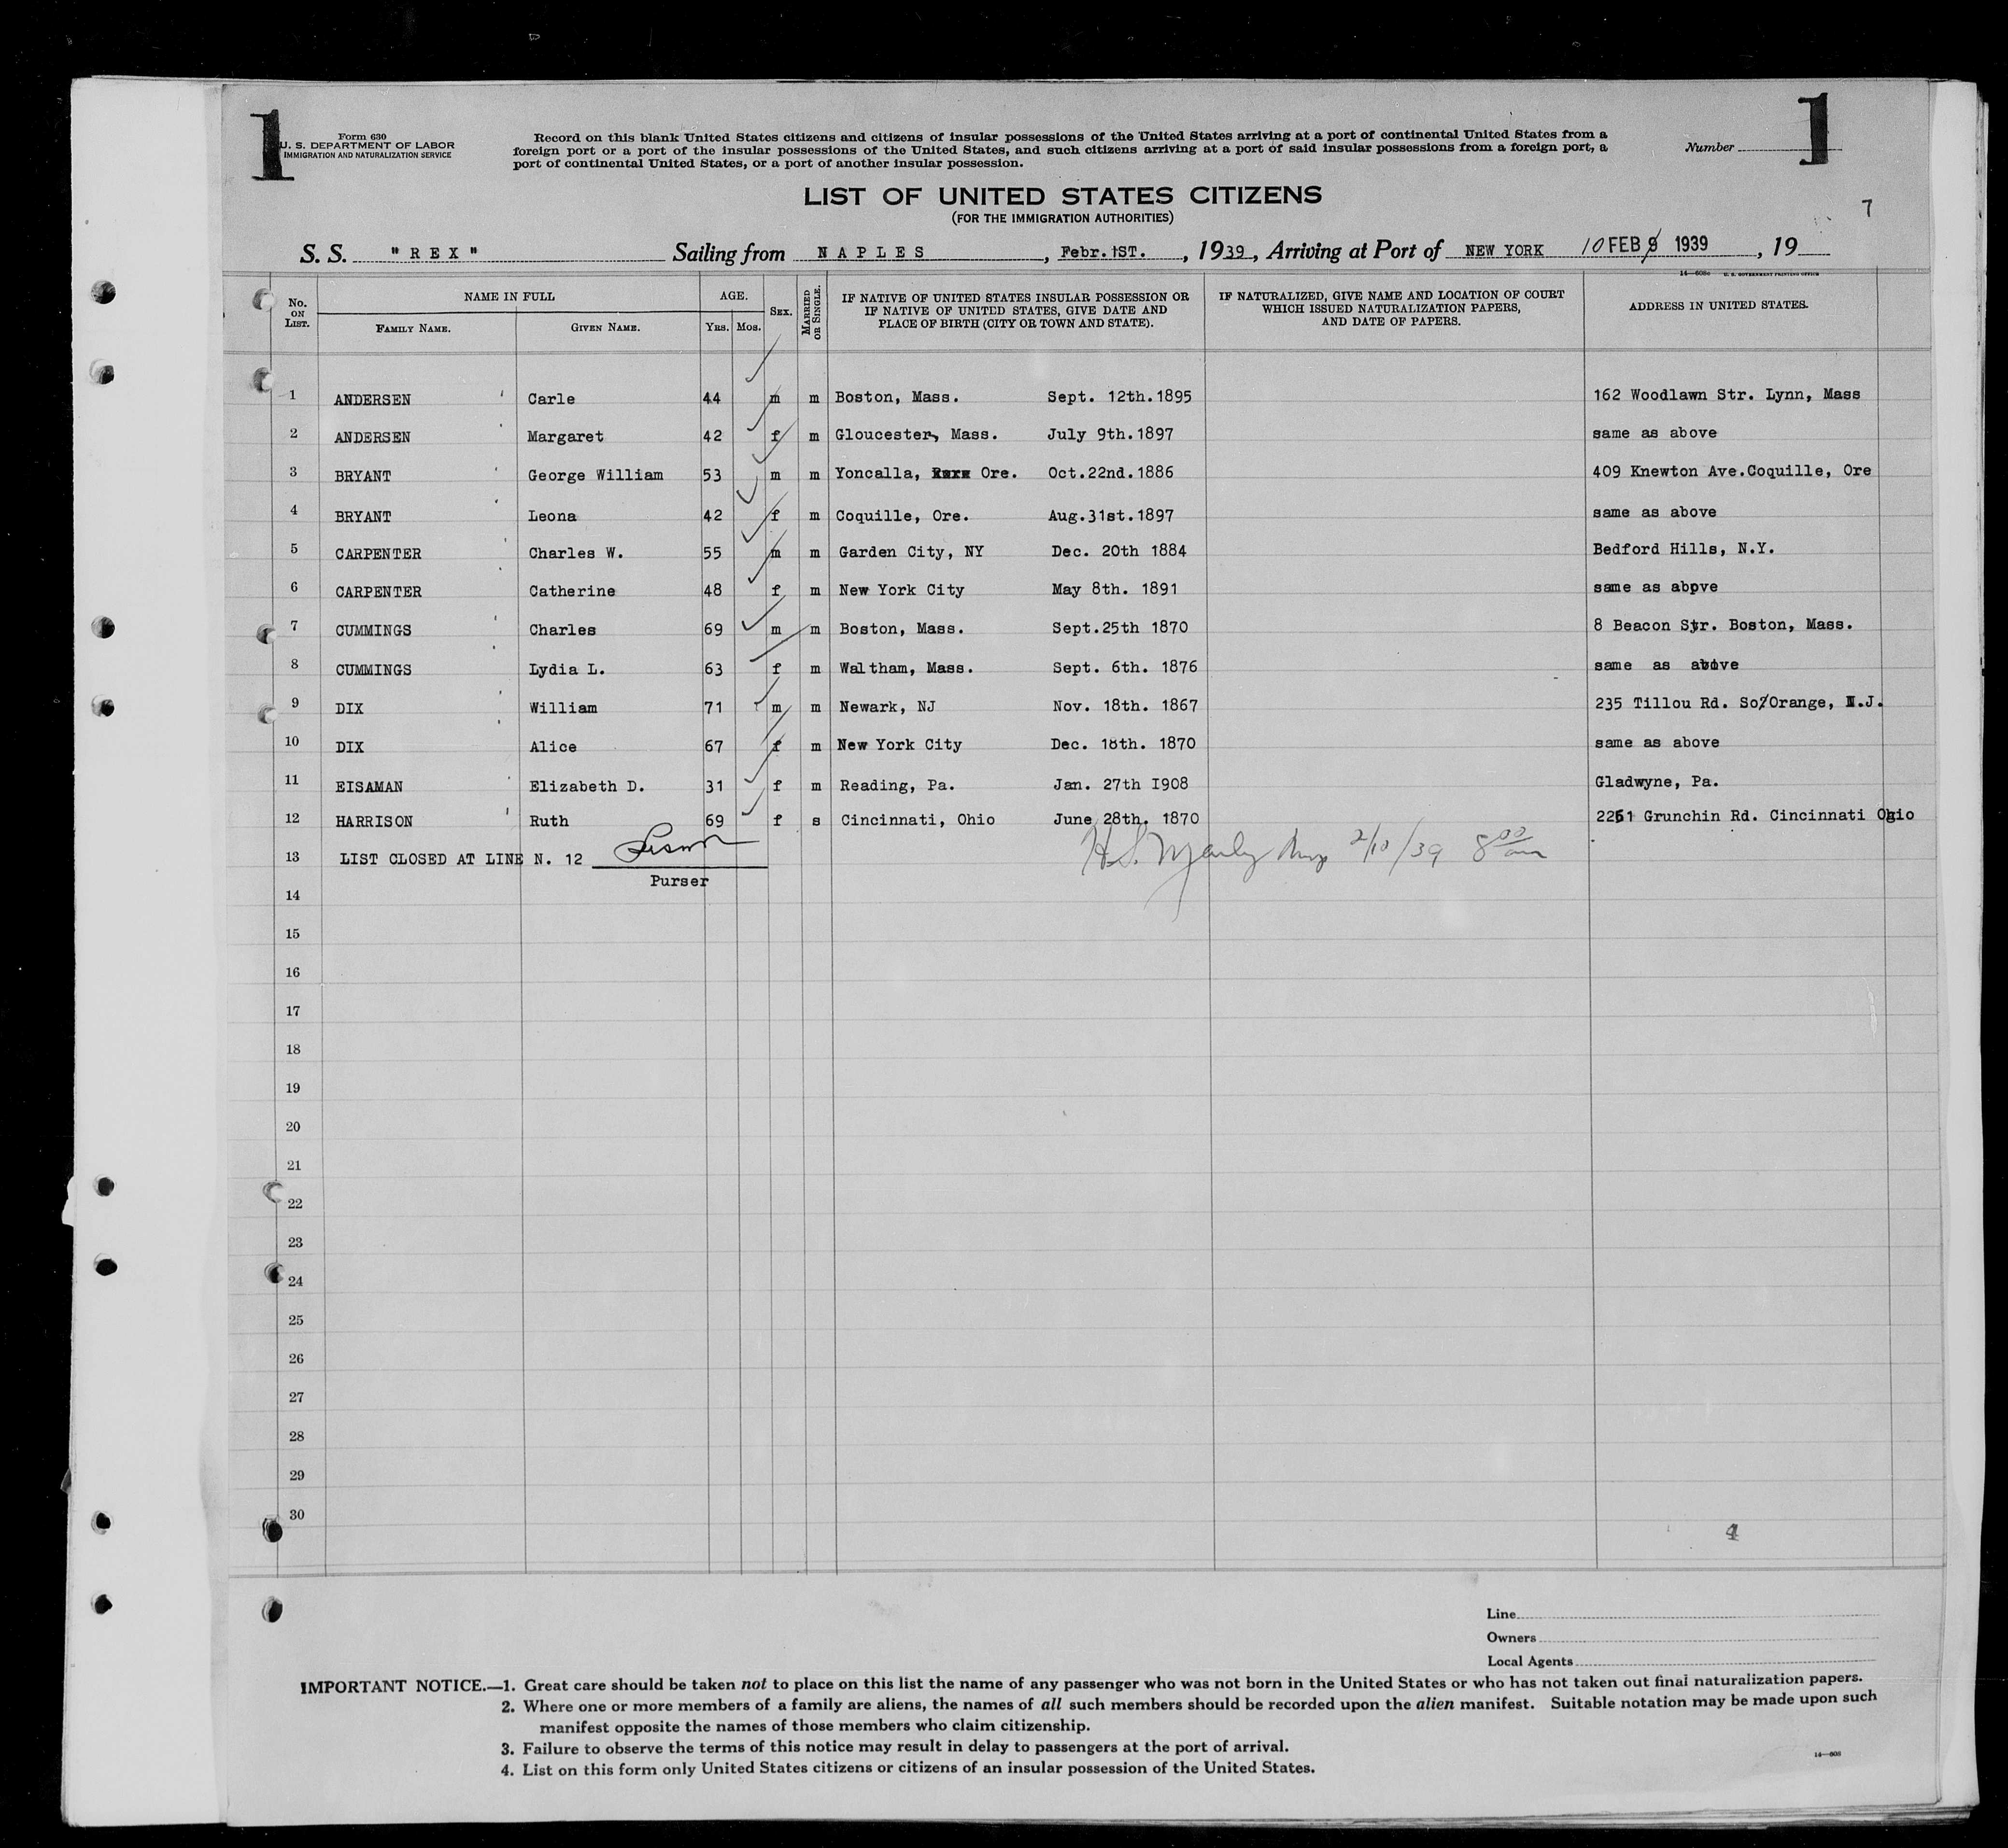 1
1
Form 630
U. S. DEPARTMENT OF LABOR
IMMIGRATION AND NATURALIZATION SERVICE
Record on this blank United States citizens and citizens of insular possessions of the United States arriving at a port of continental United States from a
foreign port or a port of the insular possessions of the United States, and such citizens arriving at a port of said insular possessions from a foreign port, a
port of continental United States, or a port of another insular possession.
Number
LIST OF UNITED STATES CITIZENS
(FOR THE IMMIGRATION AUTHORITIES)
7
S. S. "REX" Sailing from NAPLES, Febr. 1ST., 1939, Arriving at Port of NEW YORK 10 FEB 9 1939, 19
14—608c U. S. GOVERNMENT PRINTING OFFICE
No. ON LIST. NAME IN FULL AGE. SEX. MARRIED OR SINGLE. IF NATIVE OF UNITED STATES INSULAR POSSESSION OR IF NATIVE OF UNITED STATES, GIVE DATE AND PLACE OF BIRTH (CITY OR TOWN AND STATE). IF NATURALIZED, GIVE NAME AND LOCATION OF COURT WHICH ISSUED NATURALIZATION PAPERS, AND DATE OF PAPERS. ADDRESS IN UNITED STATES.
FAMILY NAME. GIVEN NAME. YRS. MOS.
1 ANDERSEN Carle 44 m m Boston, Mass. Sept. 12th.1895 162 Woodlawn Str. Lynn, Mass
2 ANDERSEN Margaret 42 f m Gloucester, Mass. July 9th.1897 same as above
3 BRYANT George William 53 m m Yoncalla, Ore. Oct.22nd.1886 409 Knewton Ave.Coquille, Ore
4 BRYANT Leona 42 f m Coquille, Ore. Aug.31st.1897 same as above
5 CARPENTER Charles W. 55 m m Garden City, NY Dec. 20th 1884 Bedford Hills, N.Y.
6 CARPENTER Catherine 48 f m New York City May 8th. 1891 same as above
7 CUMMINGS Charles 69 m m Boston, Mass. Sept.25th 1870 8 Beacon Str. Boston, Mass.
8 CUMMINGS Lydia L. 63 f m Waltham, Mass. Sept. 6th. 1876 same as above
9 DIX William 71 m m Newark, NJ Nov. 18th. 1867 235 Tillou Rd. So/Orange, N.J.
10 DIX Alice 67 f m New York City Dec. 18th. 1870 same as above
11 EISAMAN Elizabeth D. 31 f m Reading, Pa. Jan. 27th I908 Gladwyne, Pa.
12 HARRISON Ruth 69 f s Cincinnati, Ohio June 28th. 1870 2261 Grunchin Rd. Cincinnati Ohio
13 LIST CLOSED AT LINE N. 12 2/10/39 8 00 am
Purser
14
15
16
17
18
19
20
21
22
23
24
25
26
27
28
29
30
4
Line
Owners
Local Agents
IMPORTANT NOTICE.—1. Great care should be taken not to place on this list the name of any passenger who was not born in the United States or who has not taken out final naturalization papers.
2. Where one or more members of a family are aliens, the names of all such members should be recorded upon the alien manifest. Suitable notation may be made upon such
manifest opposite the names of those members who claim citizenship.
3. Failure to observe the terms of this notice may result in delay to passengers at the port of arrival.
4. List on this form only United States citizens or citizens of an insular possession of the United States.
14—608